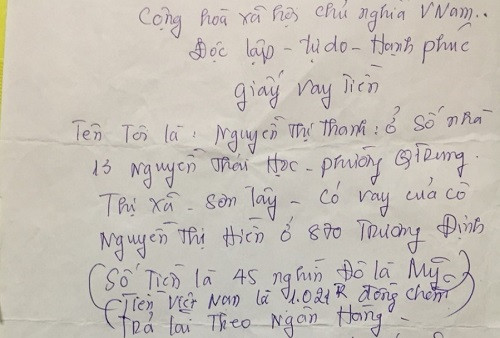 Cộng hoà xã hội chủ nghĩa VNam..
Độc lập - Tự do - Hạnh phúc
giấy vay Tiền
Tên Tôi là : Nguyễn Thị Thanh : ở Số nhà
13 Nguyễn Thái Học - phường QTrung.
Thị xã - Sơn Tây - Có vay của cô
Nguyễn Thị Hiền ở 870 Trương Định
(Số Tiền là 45 nghìn Đô la Mỹ)
(Tiền Việt Nam là 1.021 đồng chẵn)
Trả lãi Theo Ngân Hàng